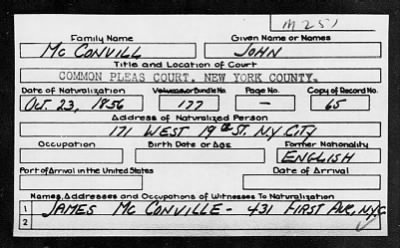 M 251
Family Name Given Name or Names
MC CONVILL JOHN
Title and Location of Court
COMMON PLEAS COURT. NEW YORK COUNTY.
Date of Naturalization Volume or Bundle No. Page No. Copy of Record No.
OCT. 23, 1856 177 — 65
Address of Naturalized Person
171 WEST 19th ST. NY CITY
Occupation Birth Date or Age Former Nationality
ENGLISH
Port of Arrival in the United States Date of Arrival
Names, Addresses and Occupations of Witnesses To Naturalization
1 JAMES MC CONVILLE - 431 FIRST AVE, NYC
2